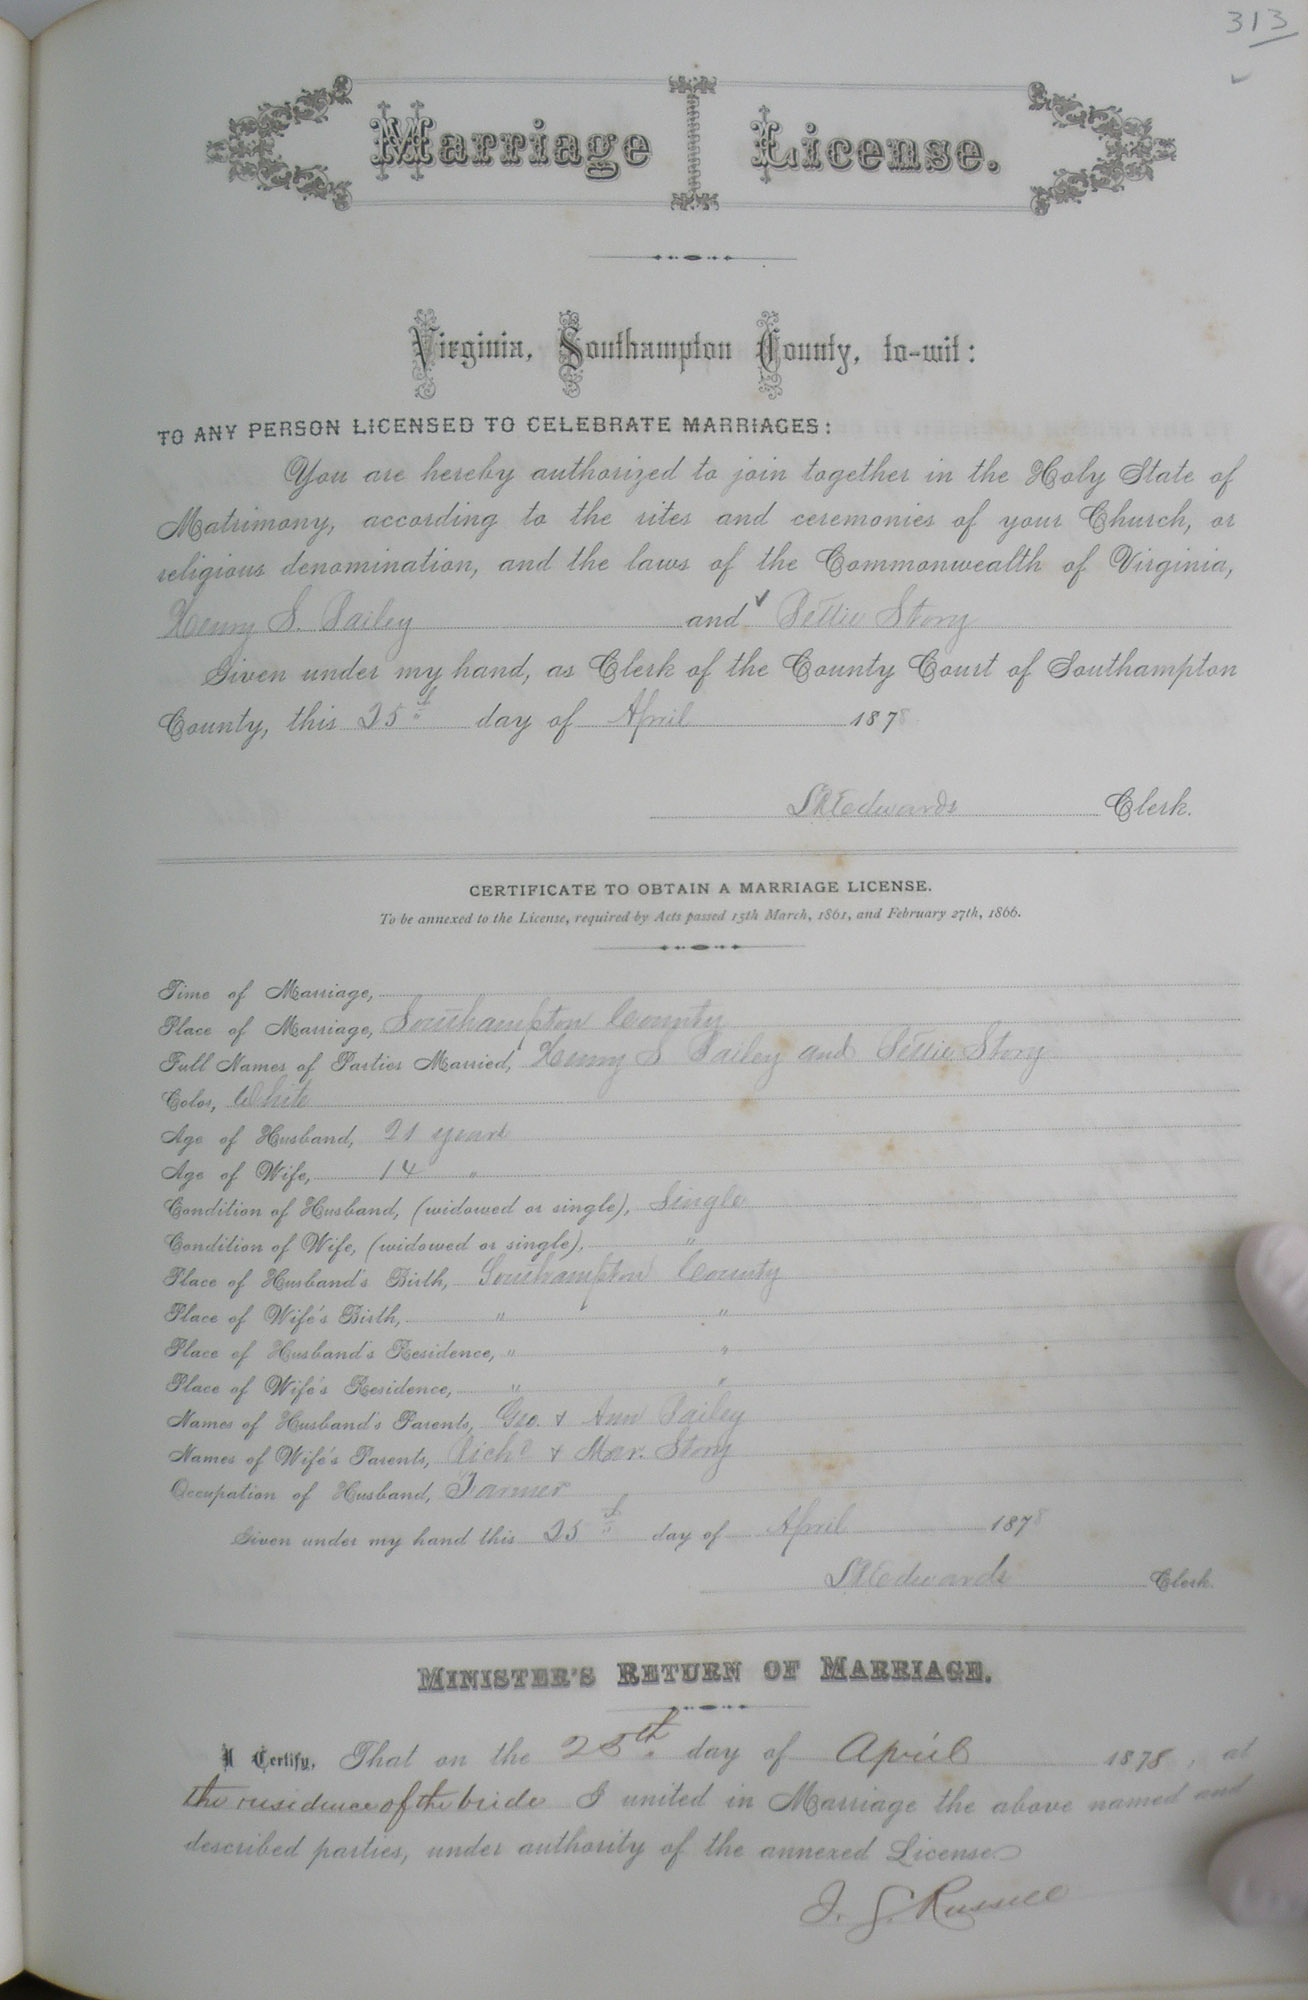 313
Marriage License.
Virginia, Southampton County, to-wit:
TO ANY PERSON LICENSED TO CELEBRATE MARRIAGES:
You are hereby authorized to join together in the Holy State of
Matrimony, according to the rites and ceremonies of your Church, or
religious denomination, and the laws of the Commonwealth of Virginia,
Henry S. Bailey and Bettie Story
Given under my hand, as Clerk of the County Court of Southampton
County, this 25th day of April 1878
Edwards Clerk.
CERTIFICATE TO OBTAIN A MARRIAGE LICENSE.
To be annexed to the License, required by Acts passed 15th March, 1861, and February 27th, 1866.
Time of Marriage,
Place of Marriage, Southampton County
Full Names of Parties Married, Henry S Bailey and Bettie Story
Color, White
Age of Husband, 21 years
Age of Wife, 14 "
Condition of Husband, (widowed or single), Single
Condition of Wife, (widowed or single), "
Place of Husband's Birth, Southampton County
Place of Wife's Birth, " "
Place of Husband's Residence, " "
Place of Wife's Residence, " "
Names of Husband's Parents, Geo. & Ann Bailey
Names of Wife's Parents, Richd & Mar. Story
Occupation of Husband, Farmer
Given under my hand this 25th day of April 1878
Edwards Clerk.
MINISTER'S RETURN OF MARRIAGE.
I Certify, That on the 25th day of April 1878, at
the residence of the bride I united in Marriage the above named and
described parties, under authority of the annexed License
J. G. Russell